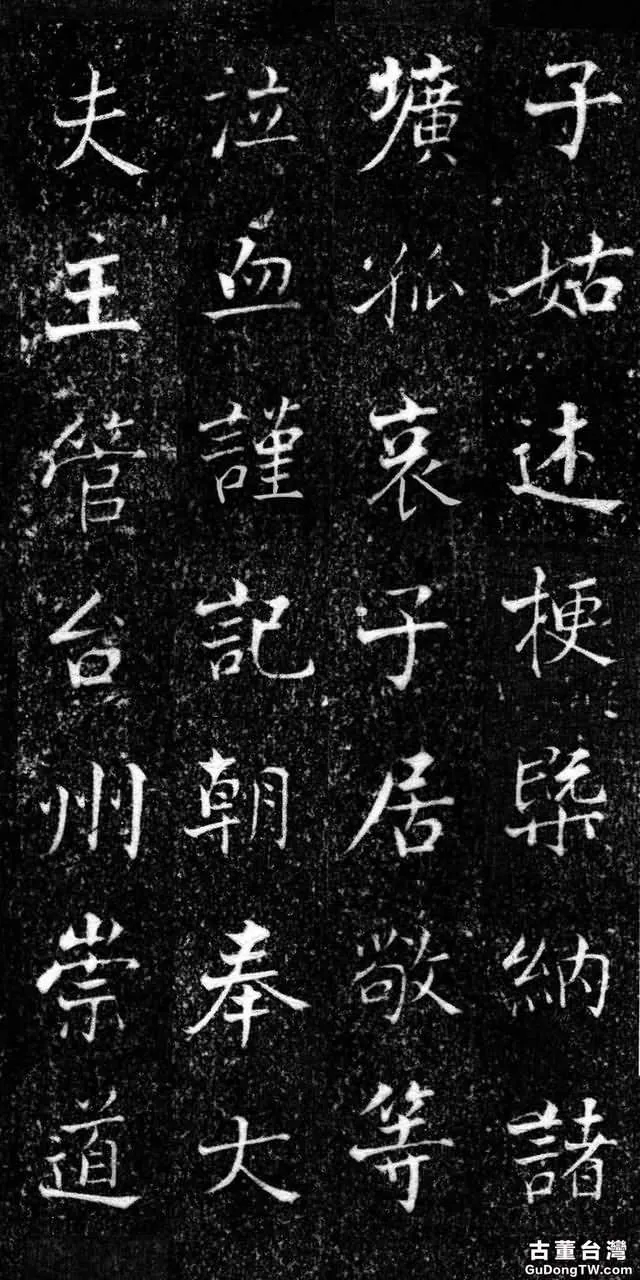 子姑述梗槩納諸
壙孤哀子居敬等
泣血謹記朝奉大
夫主管台州崇道
古董台灣
GuDongTW.com